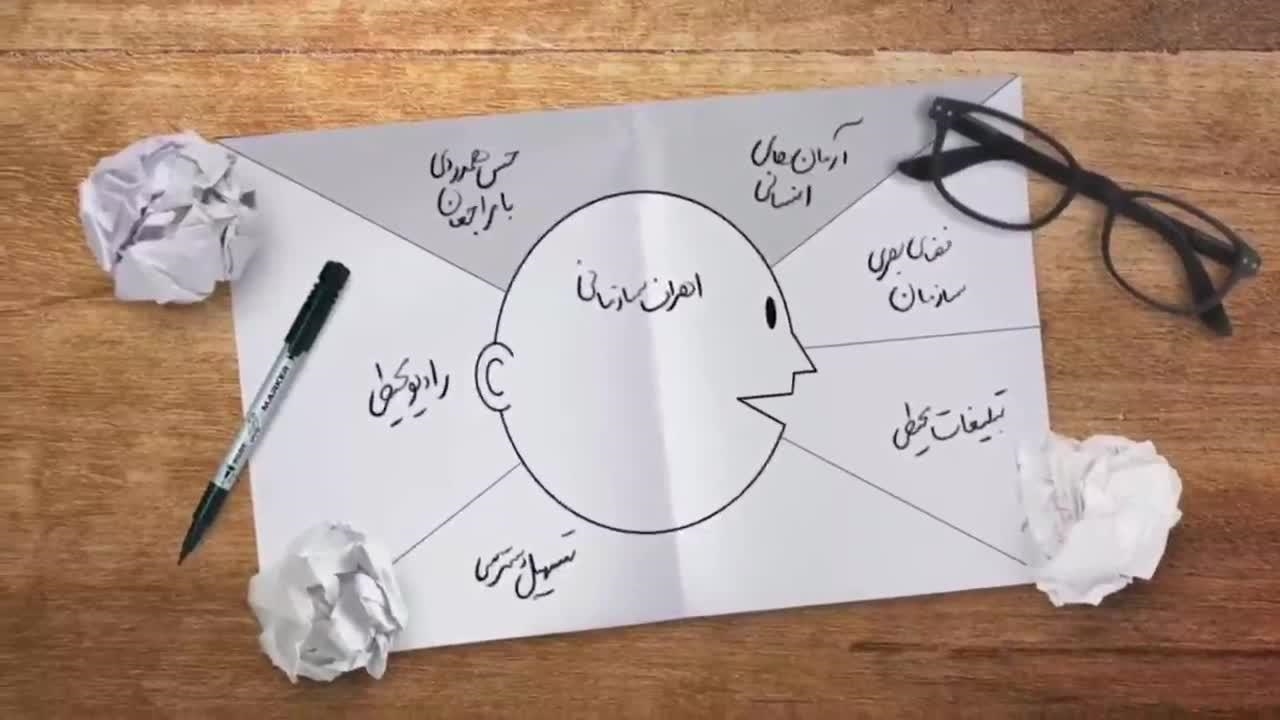 آرمان‌های
انسانی
حس همدردی
با مراجعان
اهداف سازمانی
فضای بصری
سازمان
رادیو محیطی
تبلیغات محیطی
تسهیل دسترسی
MARKER